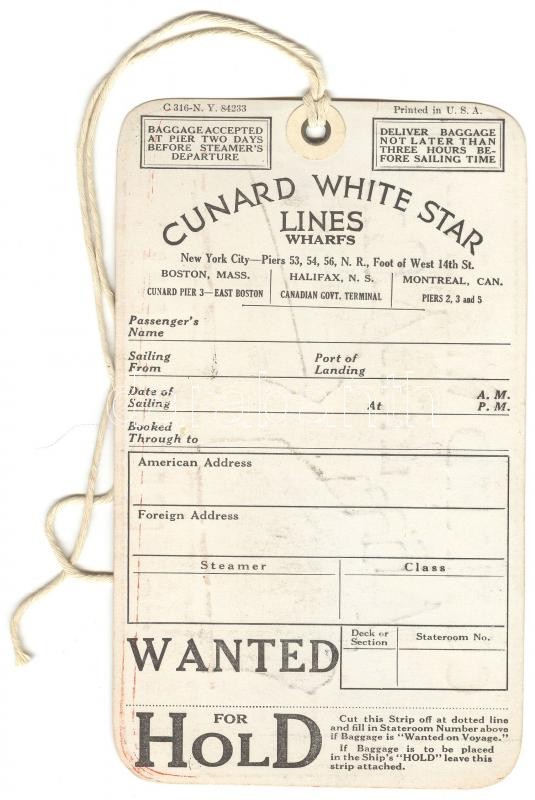 C 316-N. Y. 84233
Printed in U. S. A.
BAGGAGE ACCEPTED
AT PIER TWO DAYS
BEFORE STEAMER'S
DEPARTURE
DELIVER BAGGAGE
NOT LATER THAN
THREE HOURS BE-
FORE SAILING TIME
CUNARD WHITE STAR
LINES
WHARFS
New York City—Piers 53, 54, 56, N. R., Foot of West 14th St.
BOSTON, MASS.
CUNARD PIER 3—EAST BOSTON
HALIFAX, N. S.
CANADIAN GOVT. TERMINAL
MONTREAL, CAN.
PIERS 2, 3 and 5
Passenger's
Name
Sailing
From
Port of
Landing
Date of
Sailing
At
A. M.
P. M.
Booked
Through to
American Address
Foreign Address
Steamer
Class
WANTED
Deck or
Section
Stateroom No.
FOR
HOLD
Cut this Strip off at dotted line
and fill in Stateroom Number above
if Baggage is "Wanted on Voyage."
If Baggage is to be placed
in the Ship's "HOLD" leave this
strip attached.